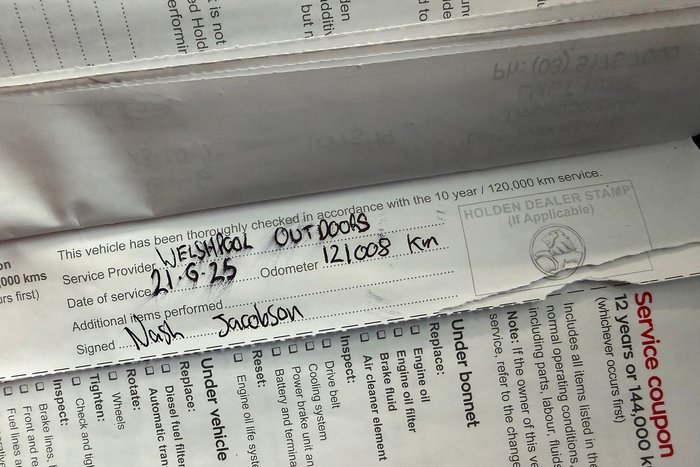 is not
ed Hold
performin
den
but n
Ph: (03) 5175 7000
This vehicle has been thoroughly checked in accordance with the 10 year / 120,000 km service.
Service Provider WELSHPOOL OUTDOORS
Date of service 21.6.25 Odometer 121008 Km
Additional items performed
Signed Nash Jacobson
HOLDEN DEALER STAMP
(If Applicable)
on
,000 kms
urs first)
Service coupon
12 years or 144,000 k
(whichever occurs first)
Includes all items listed in th
normal operating conditions
including parts, labour, fluids
Note: If the owner of this ve
service, refer to the change
Under bonnet
Replace:
Engine oil
Engine oil filter
Brake fluid
Air cleaner element
Inspect:
Drive belt
Cooling system
Power brake unit an
Battery and termina
Reset:
Engine oil life syste
Under vehicle
Replace:
Diesel fuel filter
Automatic tran
Rotate:
Wheels
Tighten:
Check and tig
Inspect:
Brake lines, h
Front and re
Fuel lines a